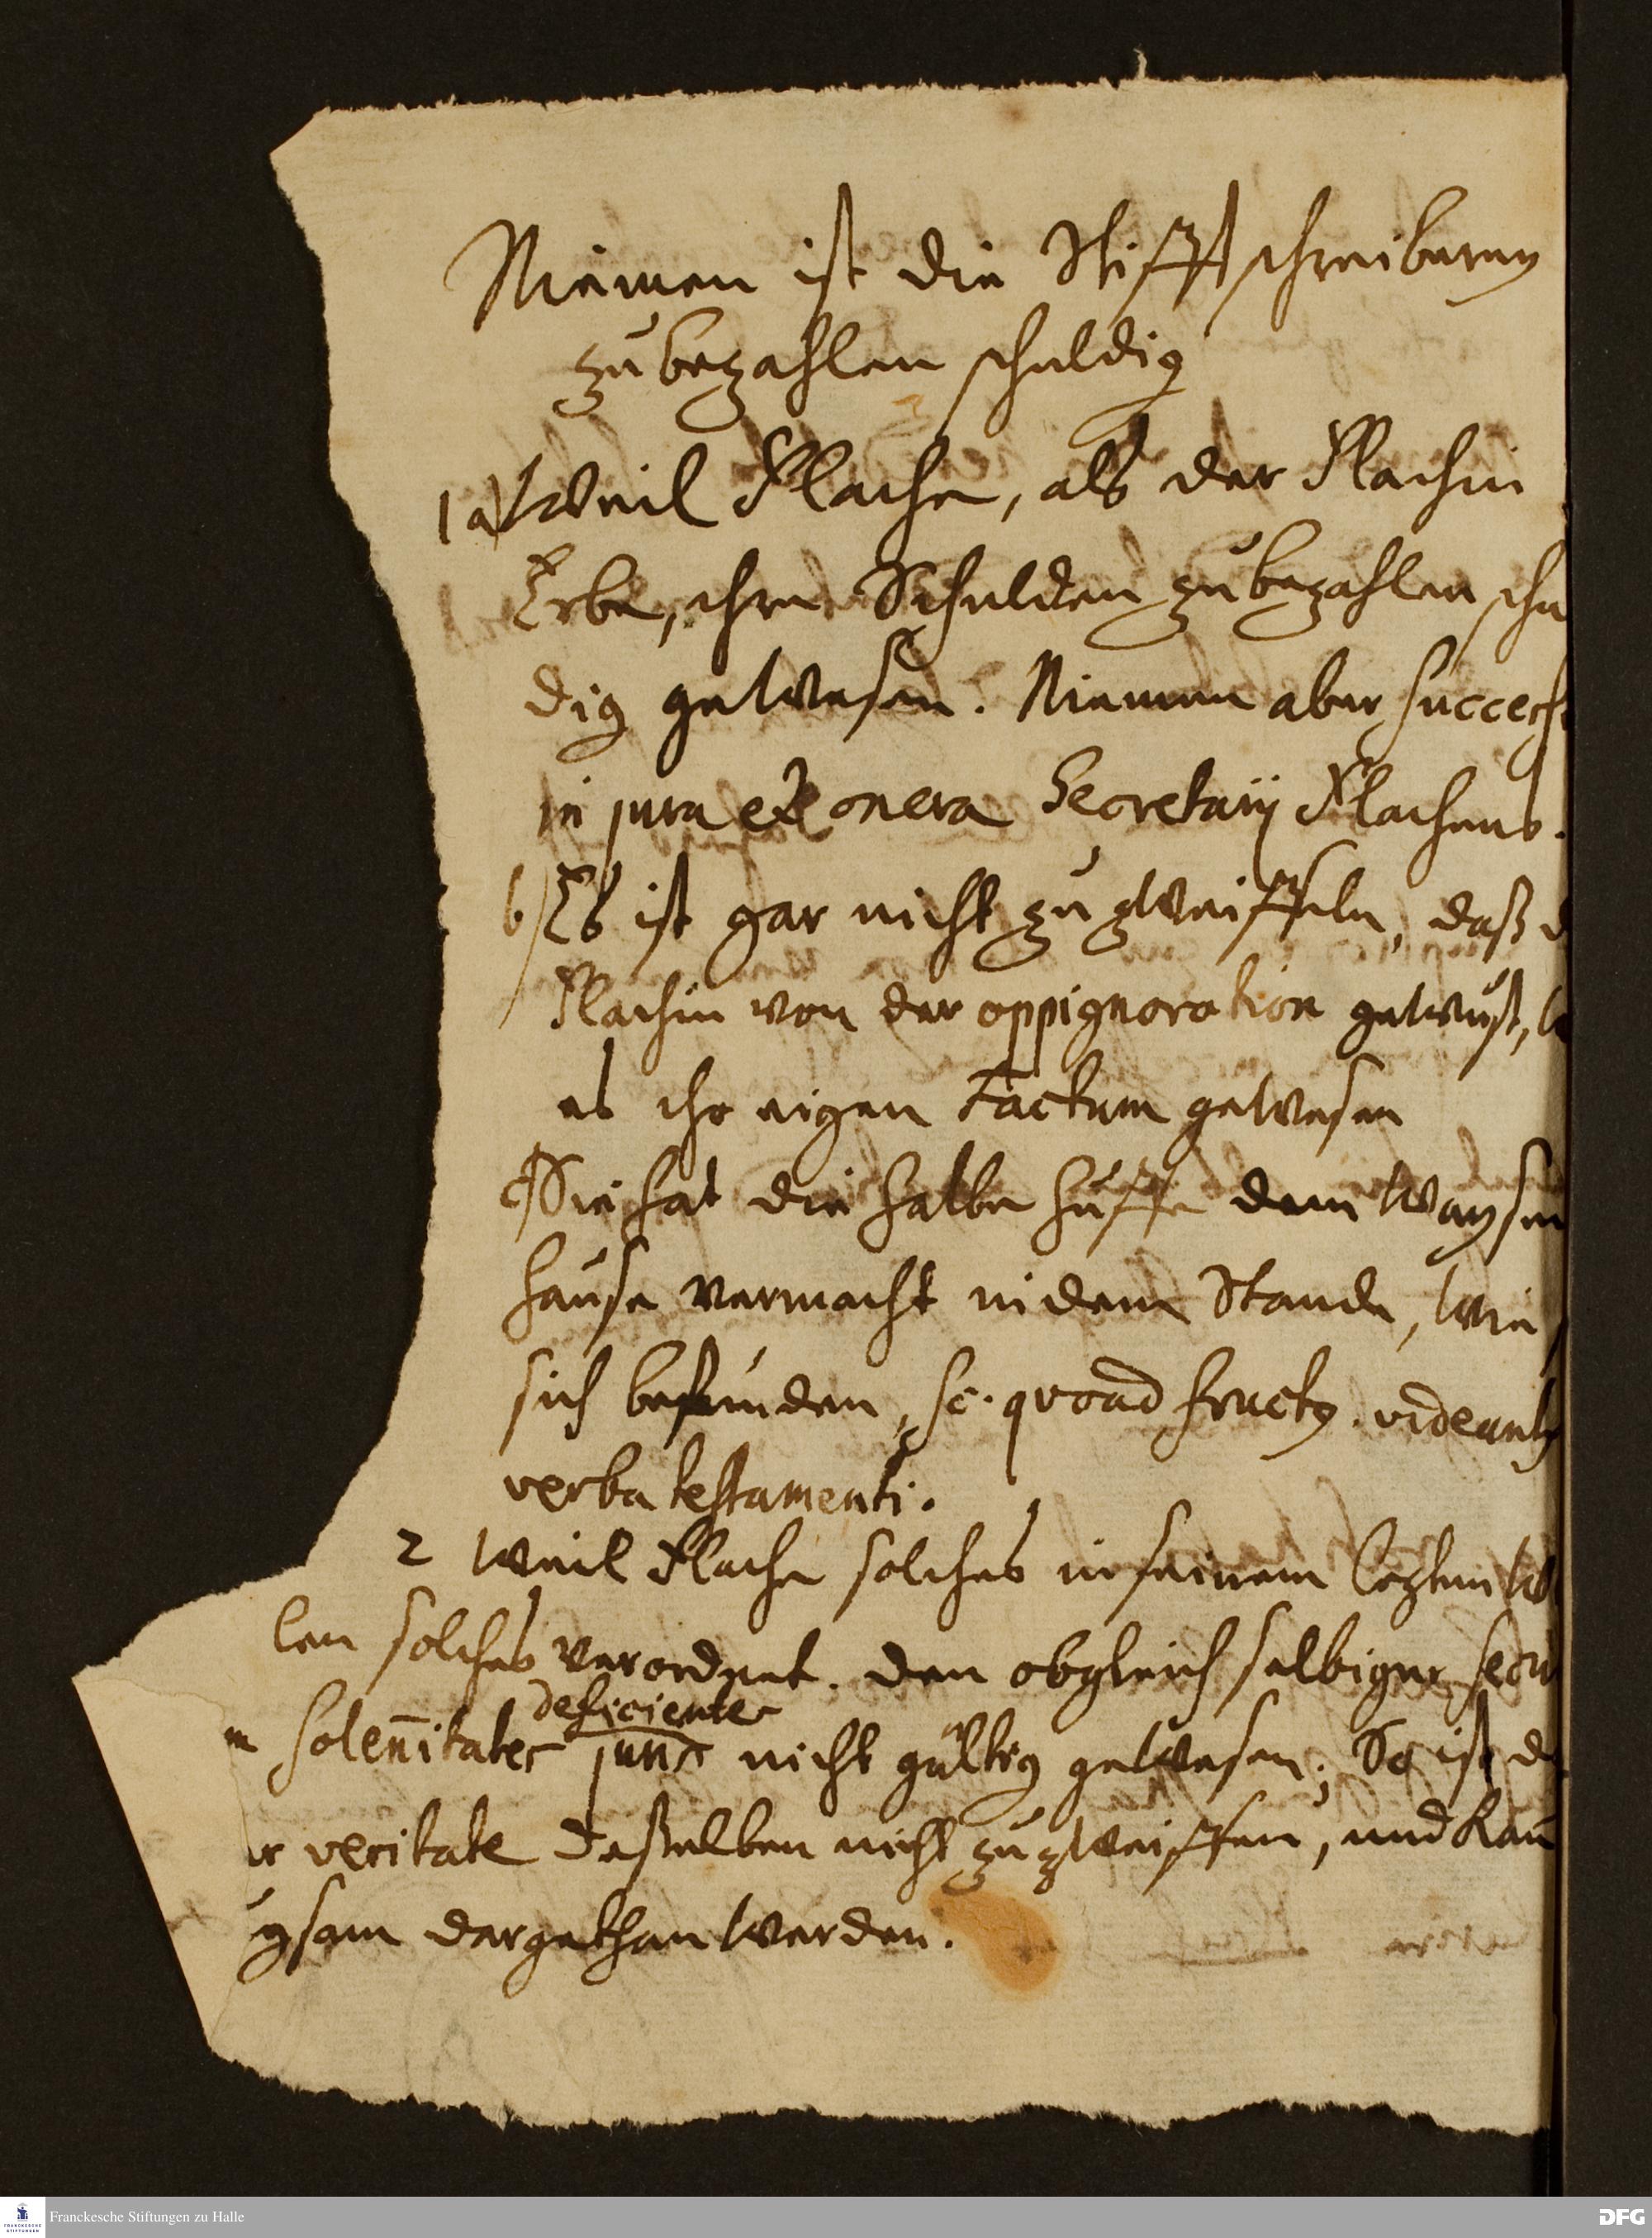 Niemen ist die Stifftschreiberey
zu bezahlen schuldig
1 a) Weil Flache, als der Flachin
Erbe, ihre Schulden zu bezahlen schu
dig gewesen. Niemen aber
in jura et onera Secretarij Flachens.
b) Es ist gar nicht zu zweiffeln, daß d
Flachin von der oppignoration gewust,
es ihr eigen Factum gewesen
c) Sie hat die halbe Huffe dem Waysen
Hause vermacht in dem Stande, wie
sich befunden, sc. quoad fructus. videantur
verba testamenti.
2 Weil Flache solches in seinem lezten
len solches verordnet. den obgleich selbiger
deficientes
solennitates juris nicht gültig gewesen; So ist d
veritate deßelben nicht zu zweiffen, und kan
gsam dargethan werden.
Franckesche Stiftungen zu Halle
FRANCKESCHE STIFTUNGEN
DFG